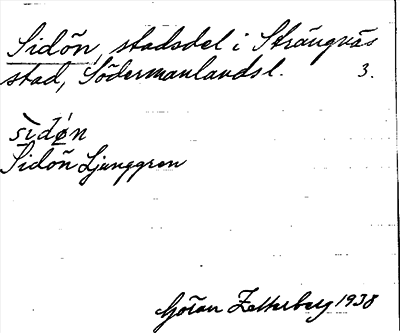 Sidön, stadsdel i Strängnäs
stad, Södermanlands l. 3.
sìdǿn
Sidön Ljunggren
Göran Zetterberg 1938